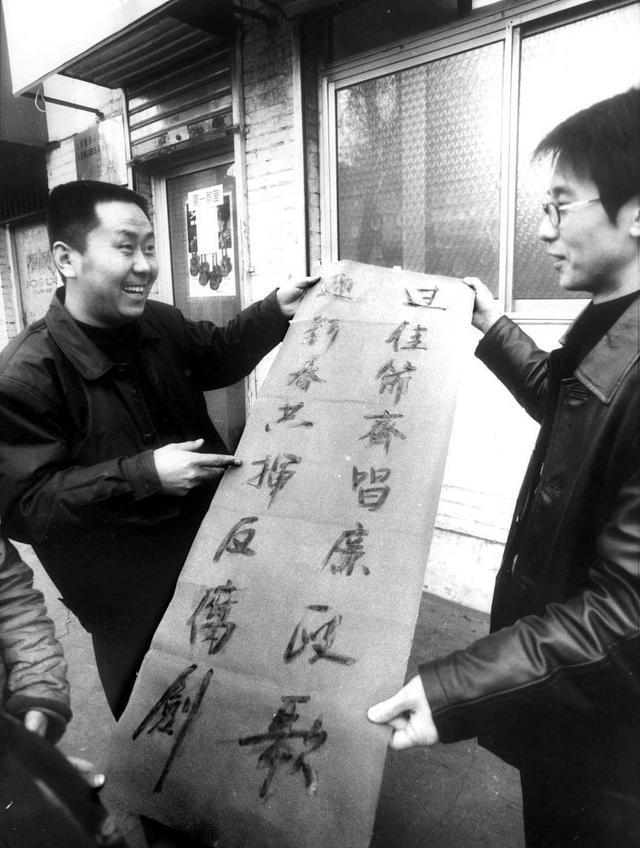 旦佳節齐唱廉政歌
迎新春共揮反腐劍